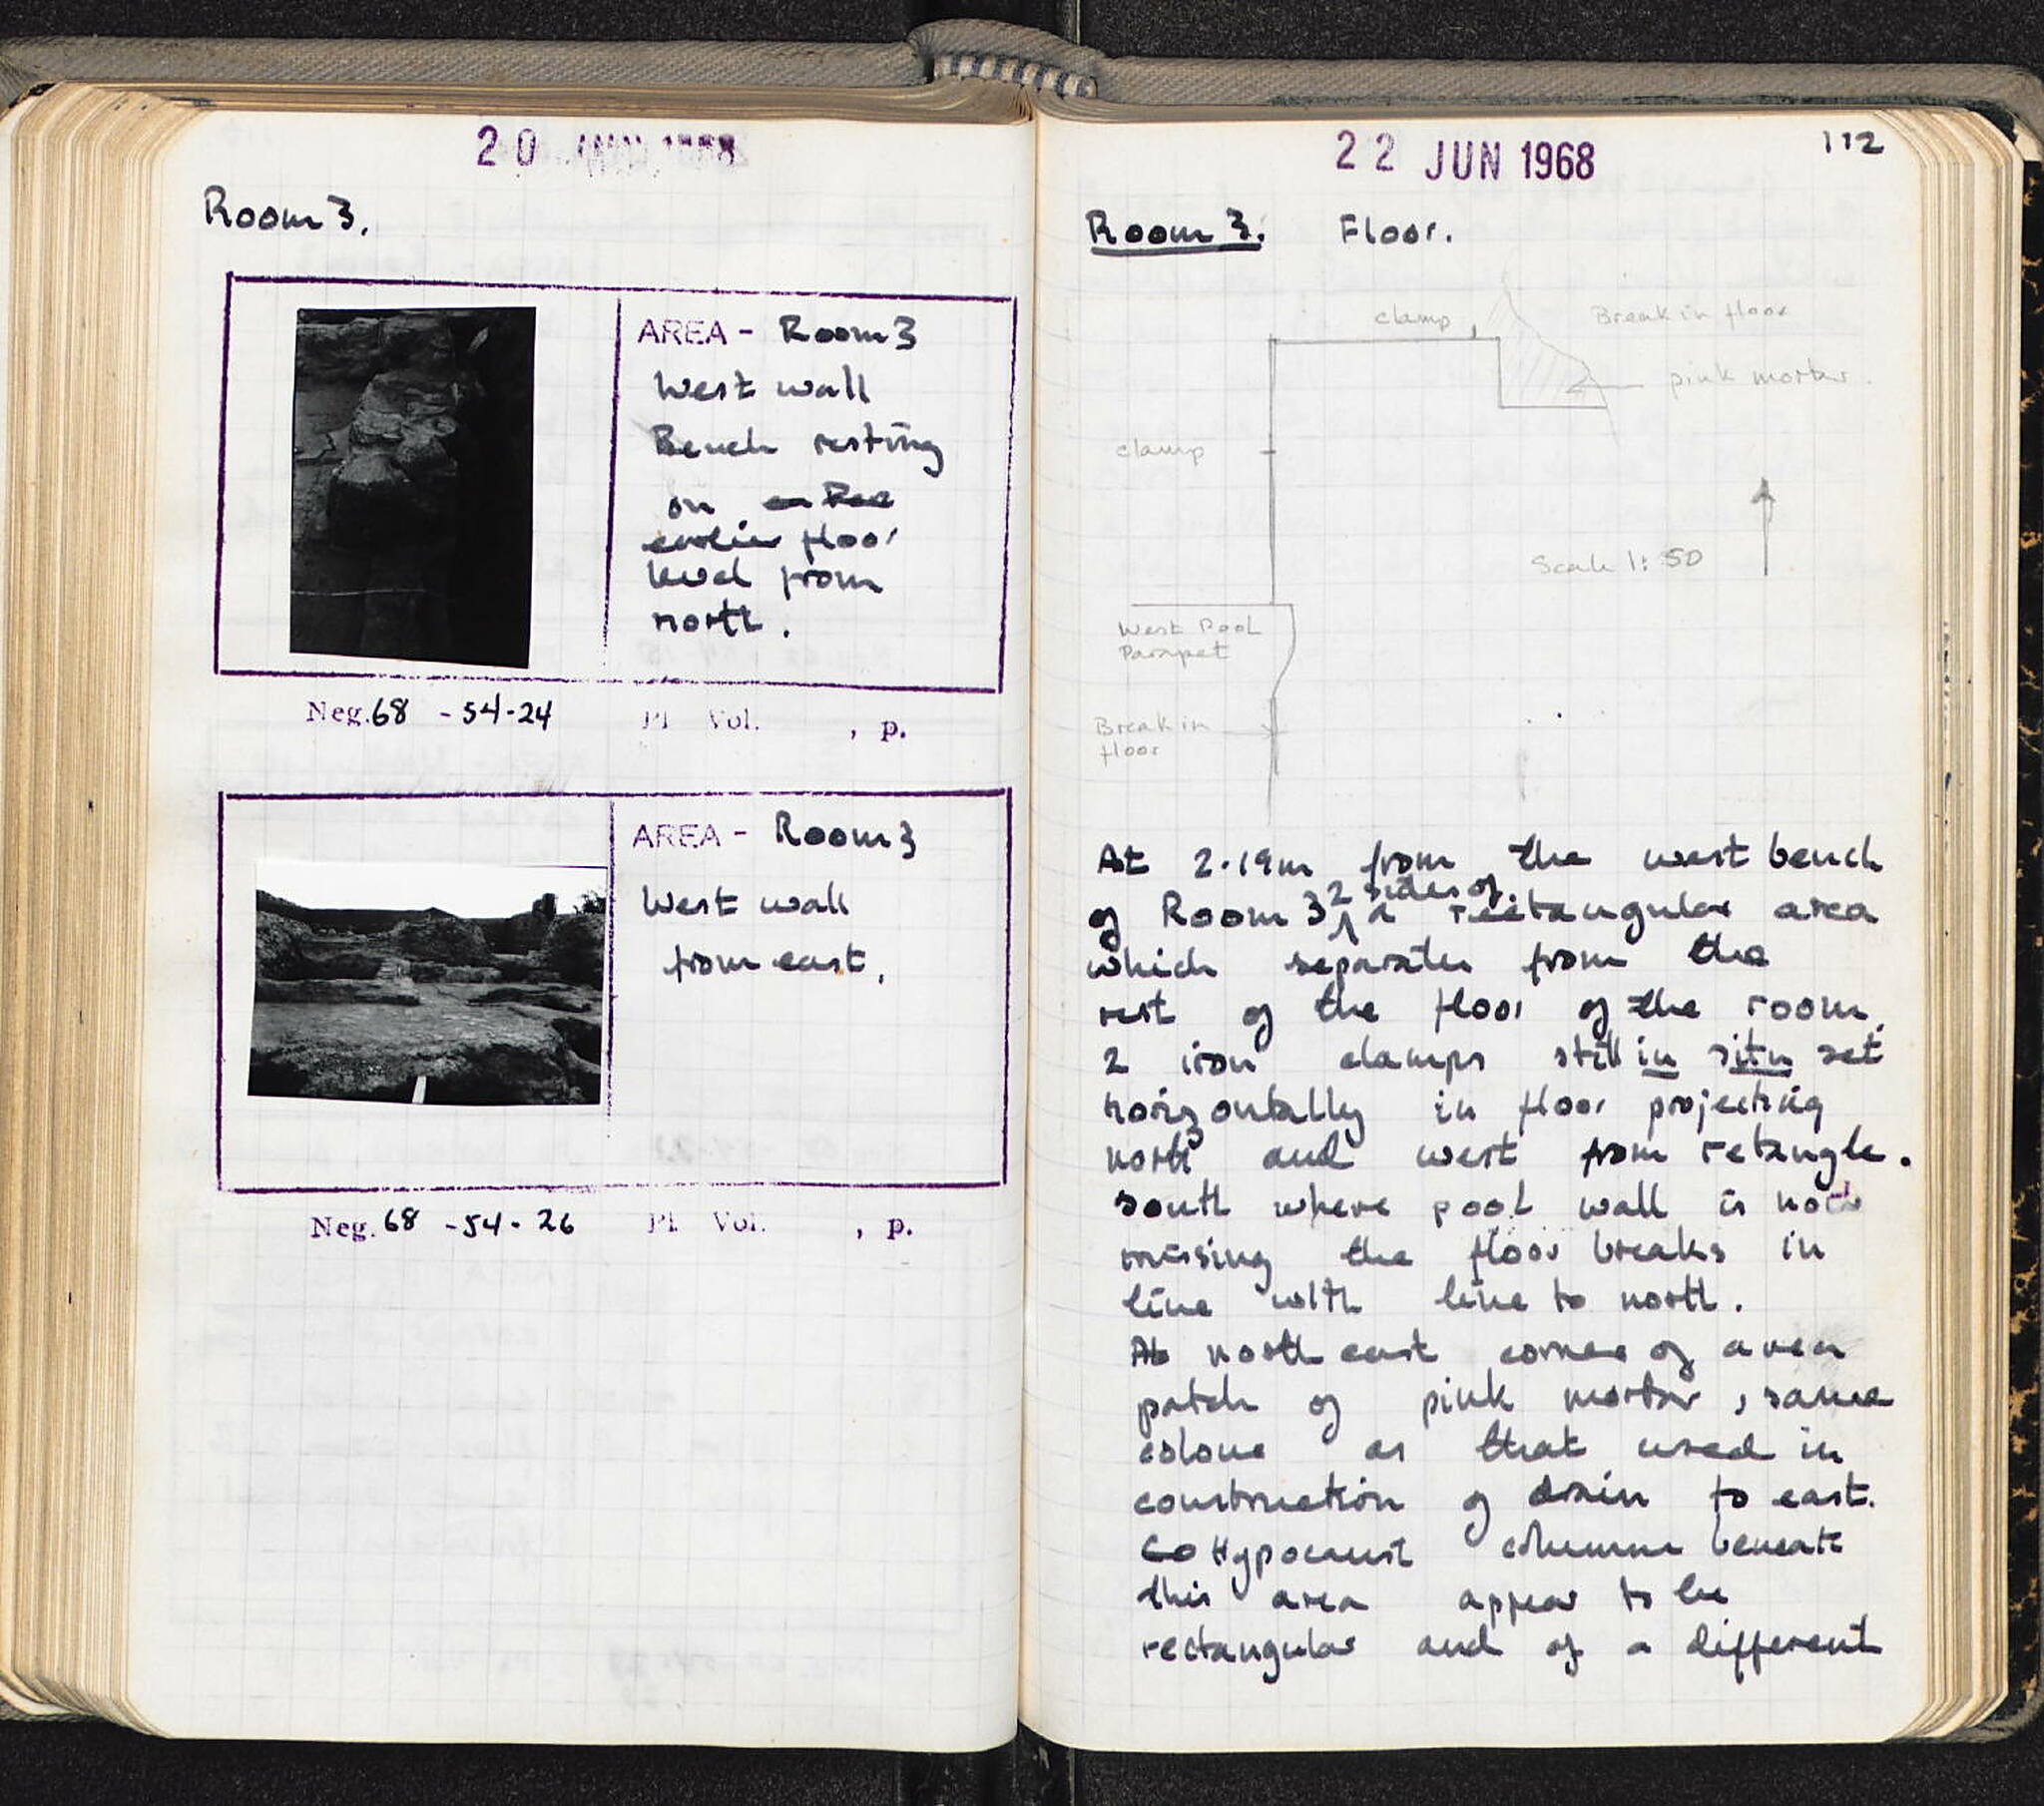 20 JUN 1968
Room 3.
AREA - Room 3
West wall
Bench resting
on
earlier floor
level from
north.
Neg. 68 - 54-24 Pl Vol. , p.
AREA - Room 3
West wall
from east.
Neg. 68 - 54 - 26 Pl. Vol. , p.
22 JUN 1968
112
Room 3. Floor.
clamp
Break in floor
pink mortar.
clamp
Scale 1:50
West Pool
Parapet
Break in
floor
At 2.19m from the west bench
of Room 3 2 sides of a rectangular area
which separates from the
rest of the floor of the room.
2 iron clamps still in situ set
horizontally in floor projecting
north and west from retangle.
South where pool wall is now
missing the floor breaks in
line with line to north.
At north east corner of area
patch of pink mortar, same
colour as that used in
construction of drain to east.
Hypocaust columns beneath
this area appear to be
rectangular and of a different